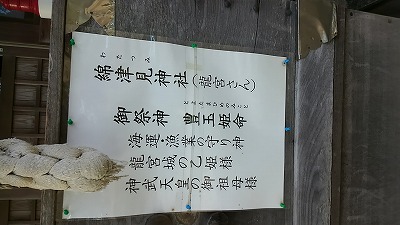 わたつみ
綿津見神社(龍宮さん)
とよたまひめのみこと
御祭神 豊玉姫命
海運・漁業の守り神
龍宮城の乙姫様
神武天皇の御祖母様